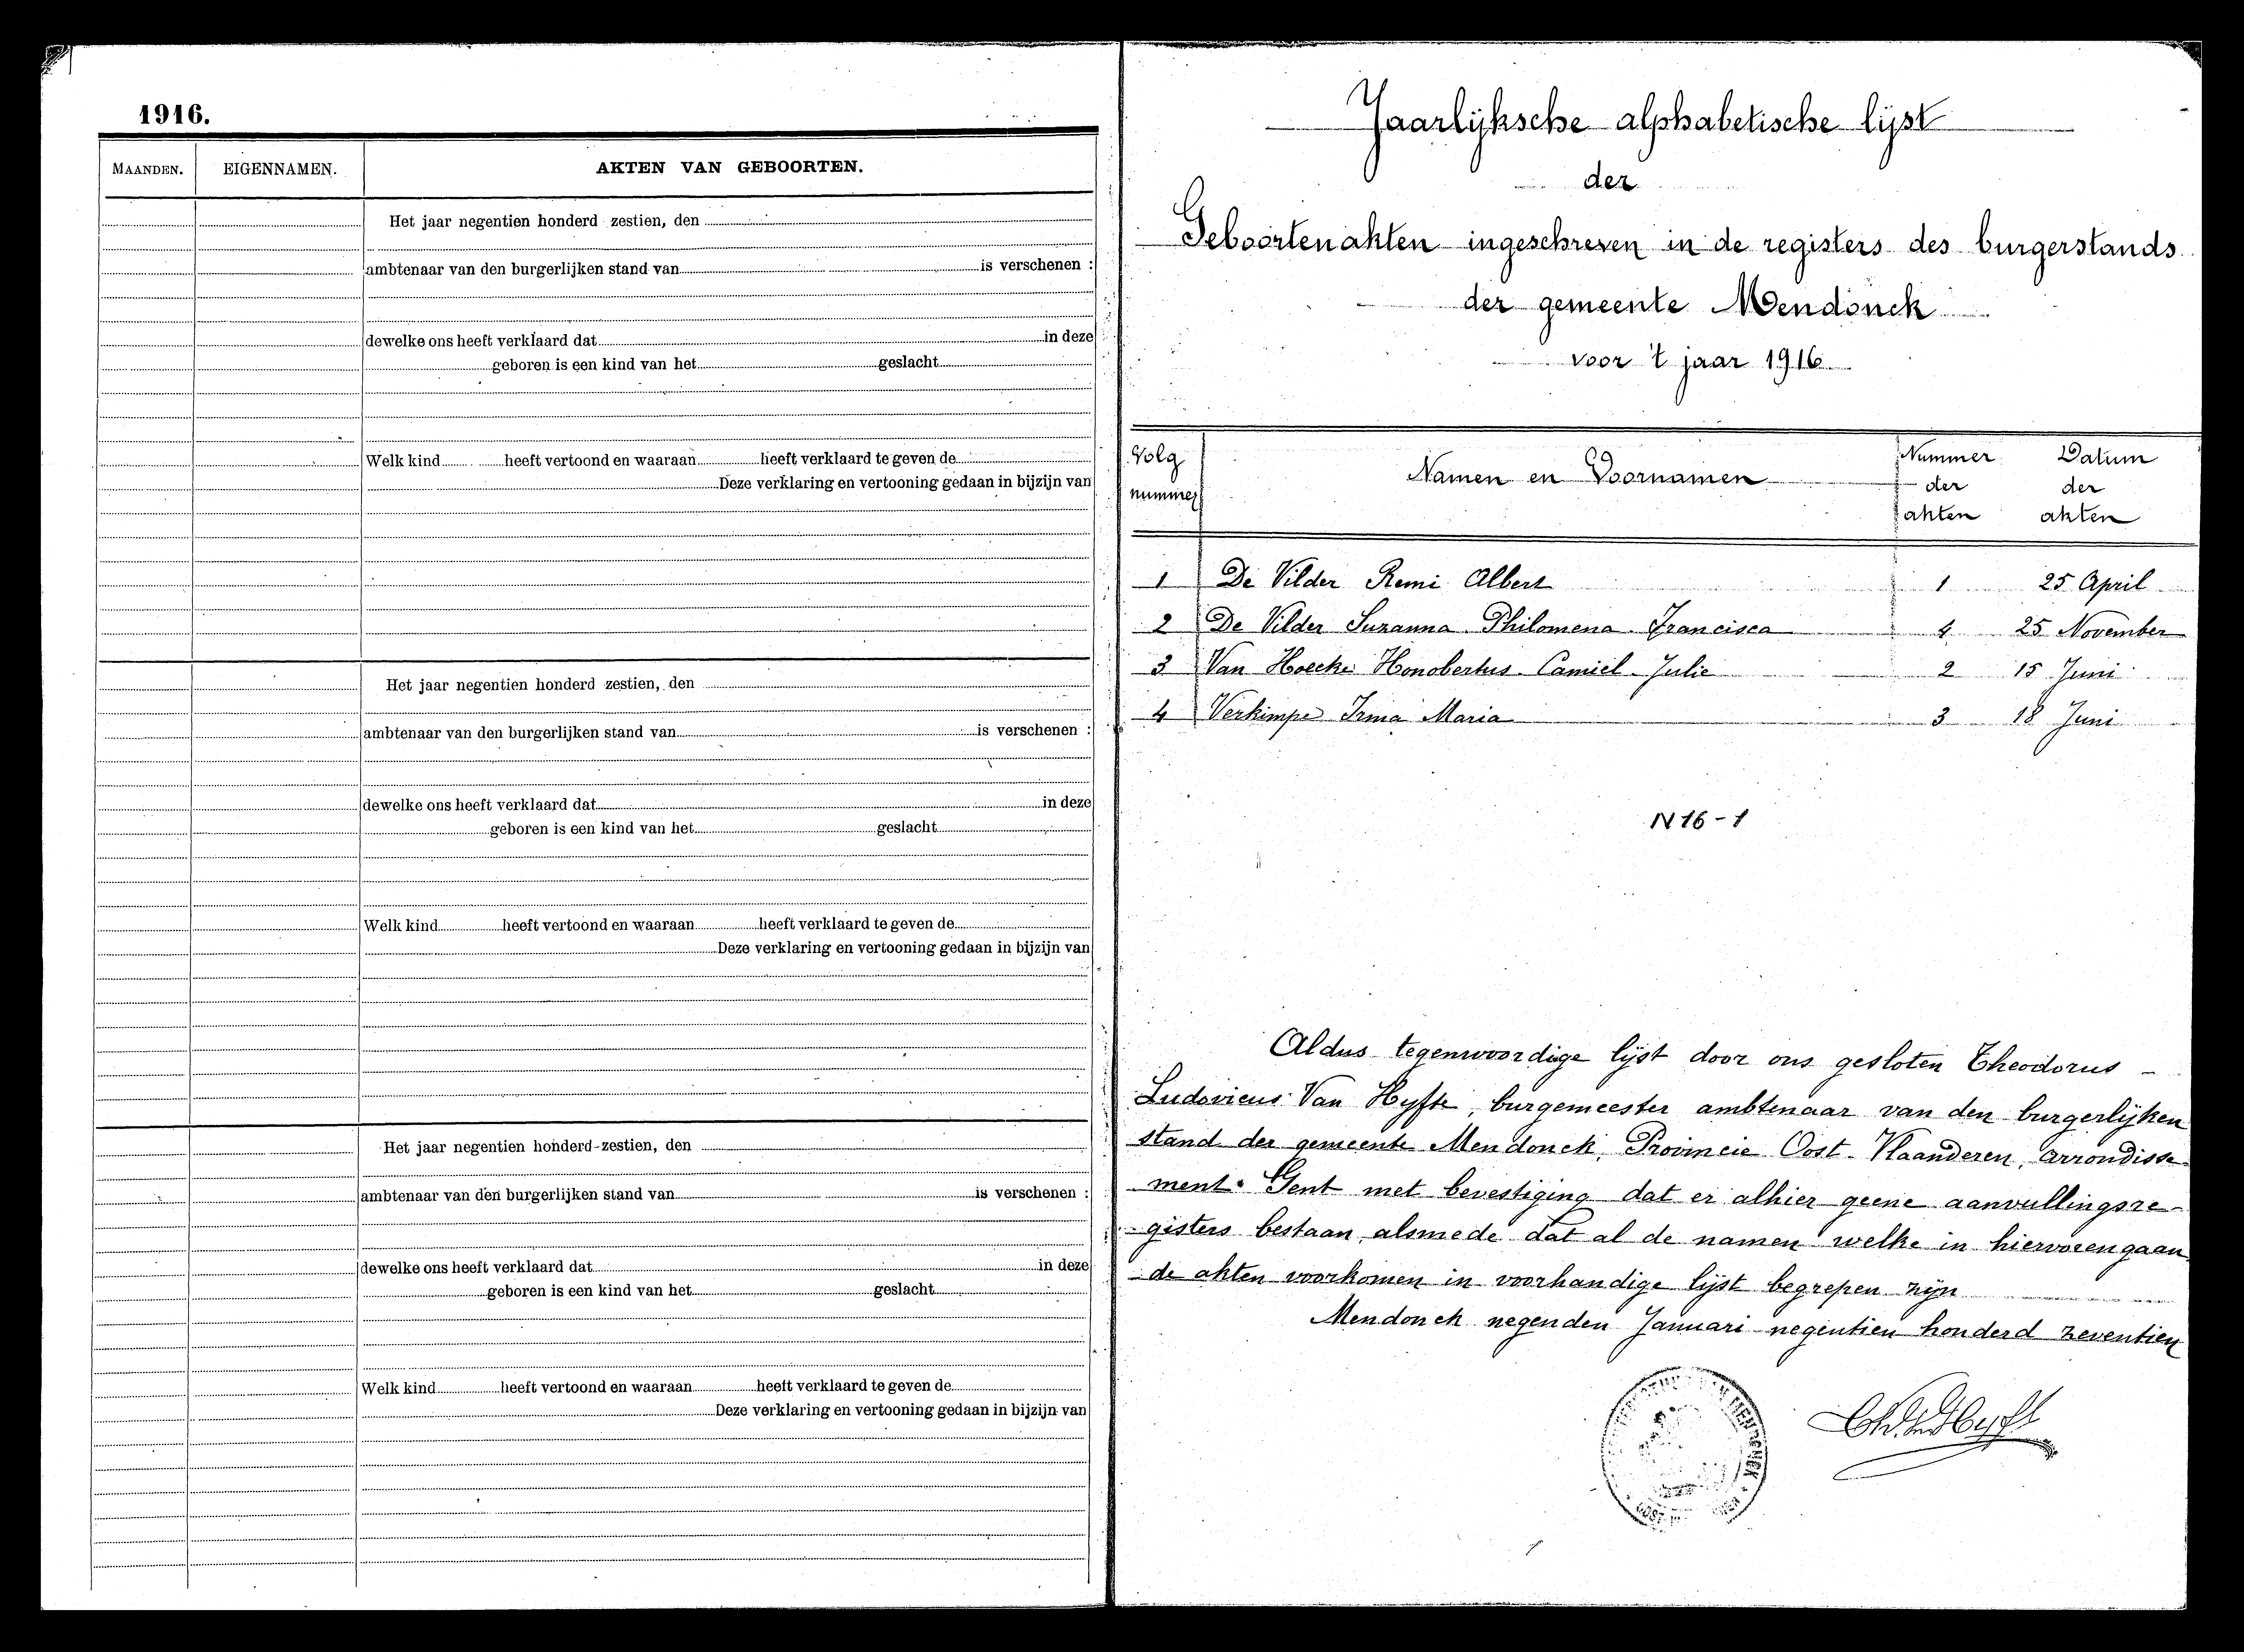 1916.
MAANDEN. EIGENNAMEN. AKTEN VAN GEBOORTEN.
Het jaar negentien honderd zestien, den
ambtenaar van den burgerlijken stand van is verschenen :
dewelke ons heeft verklaard dat in deze
geboren is een kind van het geslacht
Welk kind heeft vertoond en waaraan heeft verklaard te geven de
Deze verklaring en vertooning gedaan in bijzijn van
Het jaar negentien honderd zestien, den
ambtenaar van den burgerlijken stand van is verschenen :
dewelke ons heeft verklaard dat in deze
geboren is een kind van het geslacht
Welk kind heeft vertoond en waaraan heeft verklaard te geven de
Deze verklaring en vertooning gedaan in bijzijn van
Het jaar negentien honderd zestien, den
ambtenaar van den burgerlijken stand van is verschenen :
dewelke ons heeft verklaard dat in deze
geboren is een kind van het geslacht
Welk kind heeft vertoond en waaraan heeft verklaard te geven de
Deze verklaring en vertooning gedaan in bijzijn van
Jaarlijksche alphabetische lijst
der
Geboortenakten ingeschreven in de registers des burgerstands
der gemeente Mendonck
voor 't jaar 1916
Volg nummer Namen en Voornamen Nummer der akten Datum der akten
1 De Vilder Remi Albert 1 25 April
2 De Vilder Suzanna Philomena Francisca 4 25 November
3 Van Hoecke Honobertus Camiel Julie 2 15 Juni
4 Verkimpe Irma Maria 3 18 Juni
N 16 - 1
Aldus tegenwoordige lijst door ons gesloten Theodorus -
Ludovicus Van Hyfte, burgemeester ambtenaar van den burgerlijken
stand der gemeente Mendonck, Provincie Oost-Vlaanderen, arrondisse-
ment Gent met bevestiging dat er alhier geene aanvullingsre-
gisters bestaan, alsmede dat al de namen welke in hiervorengaan
de akten voorkomen in voorhandige lijst begrepen zijn
Mendonck negenden Januari negentien honderd zeventien